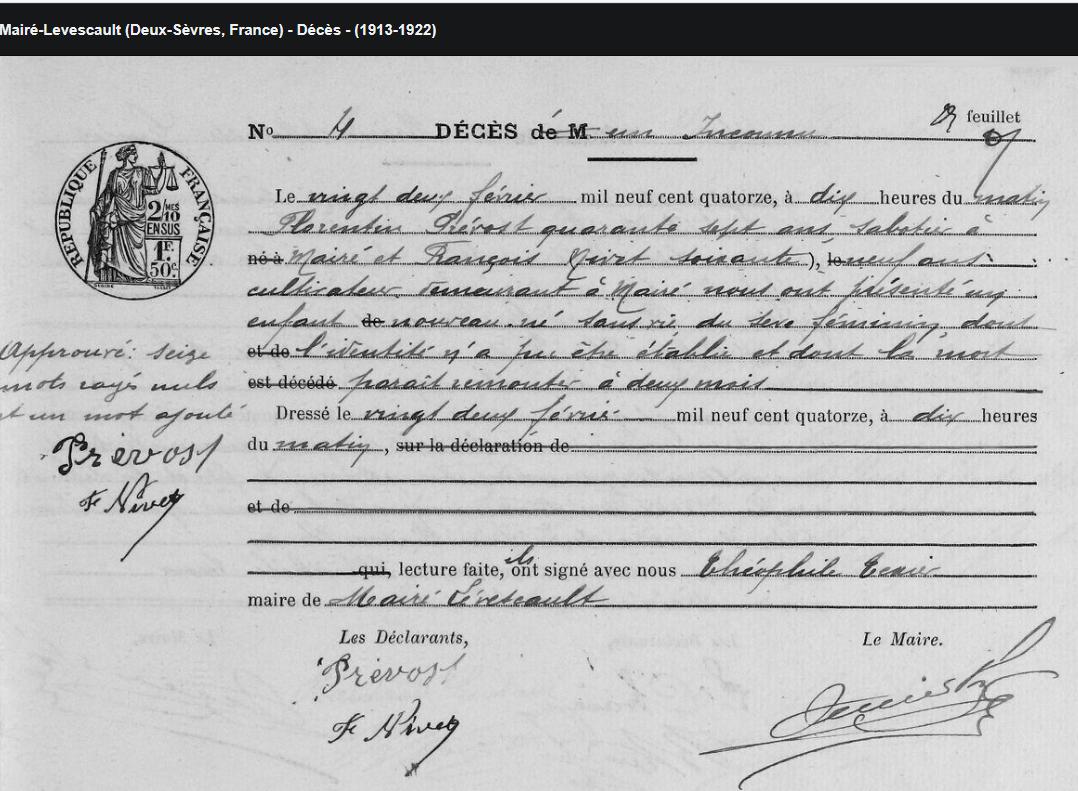 Mairé-Levescault (Deux-Sèvres, France) - Décès - (1913-1922)
feuillet
No 4 DÉCÈS de M un Inconnu
RÉPUBLIQUE FRANÇAISE
2/10 MES
EN SUS
1F.
50c.
Le vingt deux février mil neuf cent quatorze, à dix heures du matin
Florentin Prévost quarante sept ans, sabotier à
né à Mairé et François Nivet soixante), le neuf ans
cultivateur demeurant à Mairé nous ont présenté un
enfant de nouveau-né sans vie du sexe féminin dont
et de l'identité n'a pu être établie et dont la mort
est décédé paraît remonter à deux mois
Approuvé: seize
mots rayés nuls
et un mot ajouté
Prévost
F Nivet
Dressé le vingt deux février mil neuf cent quatorze, à dix heures
du matin, sur la déclaration de
et de
qui, lecture faite, ils ont signé avec nous Théophile
maire de Mairé Lévescault
Les Déclarants,
Le Maire.
Prévost
F Nivet